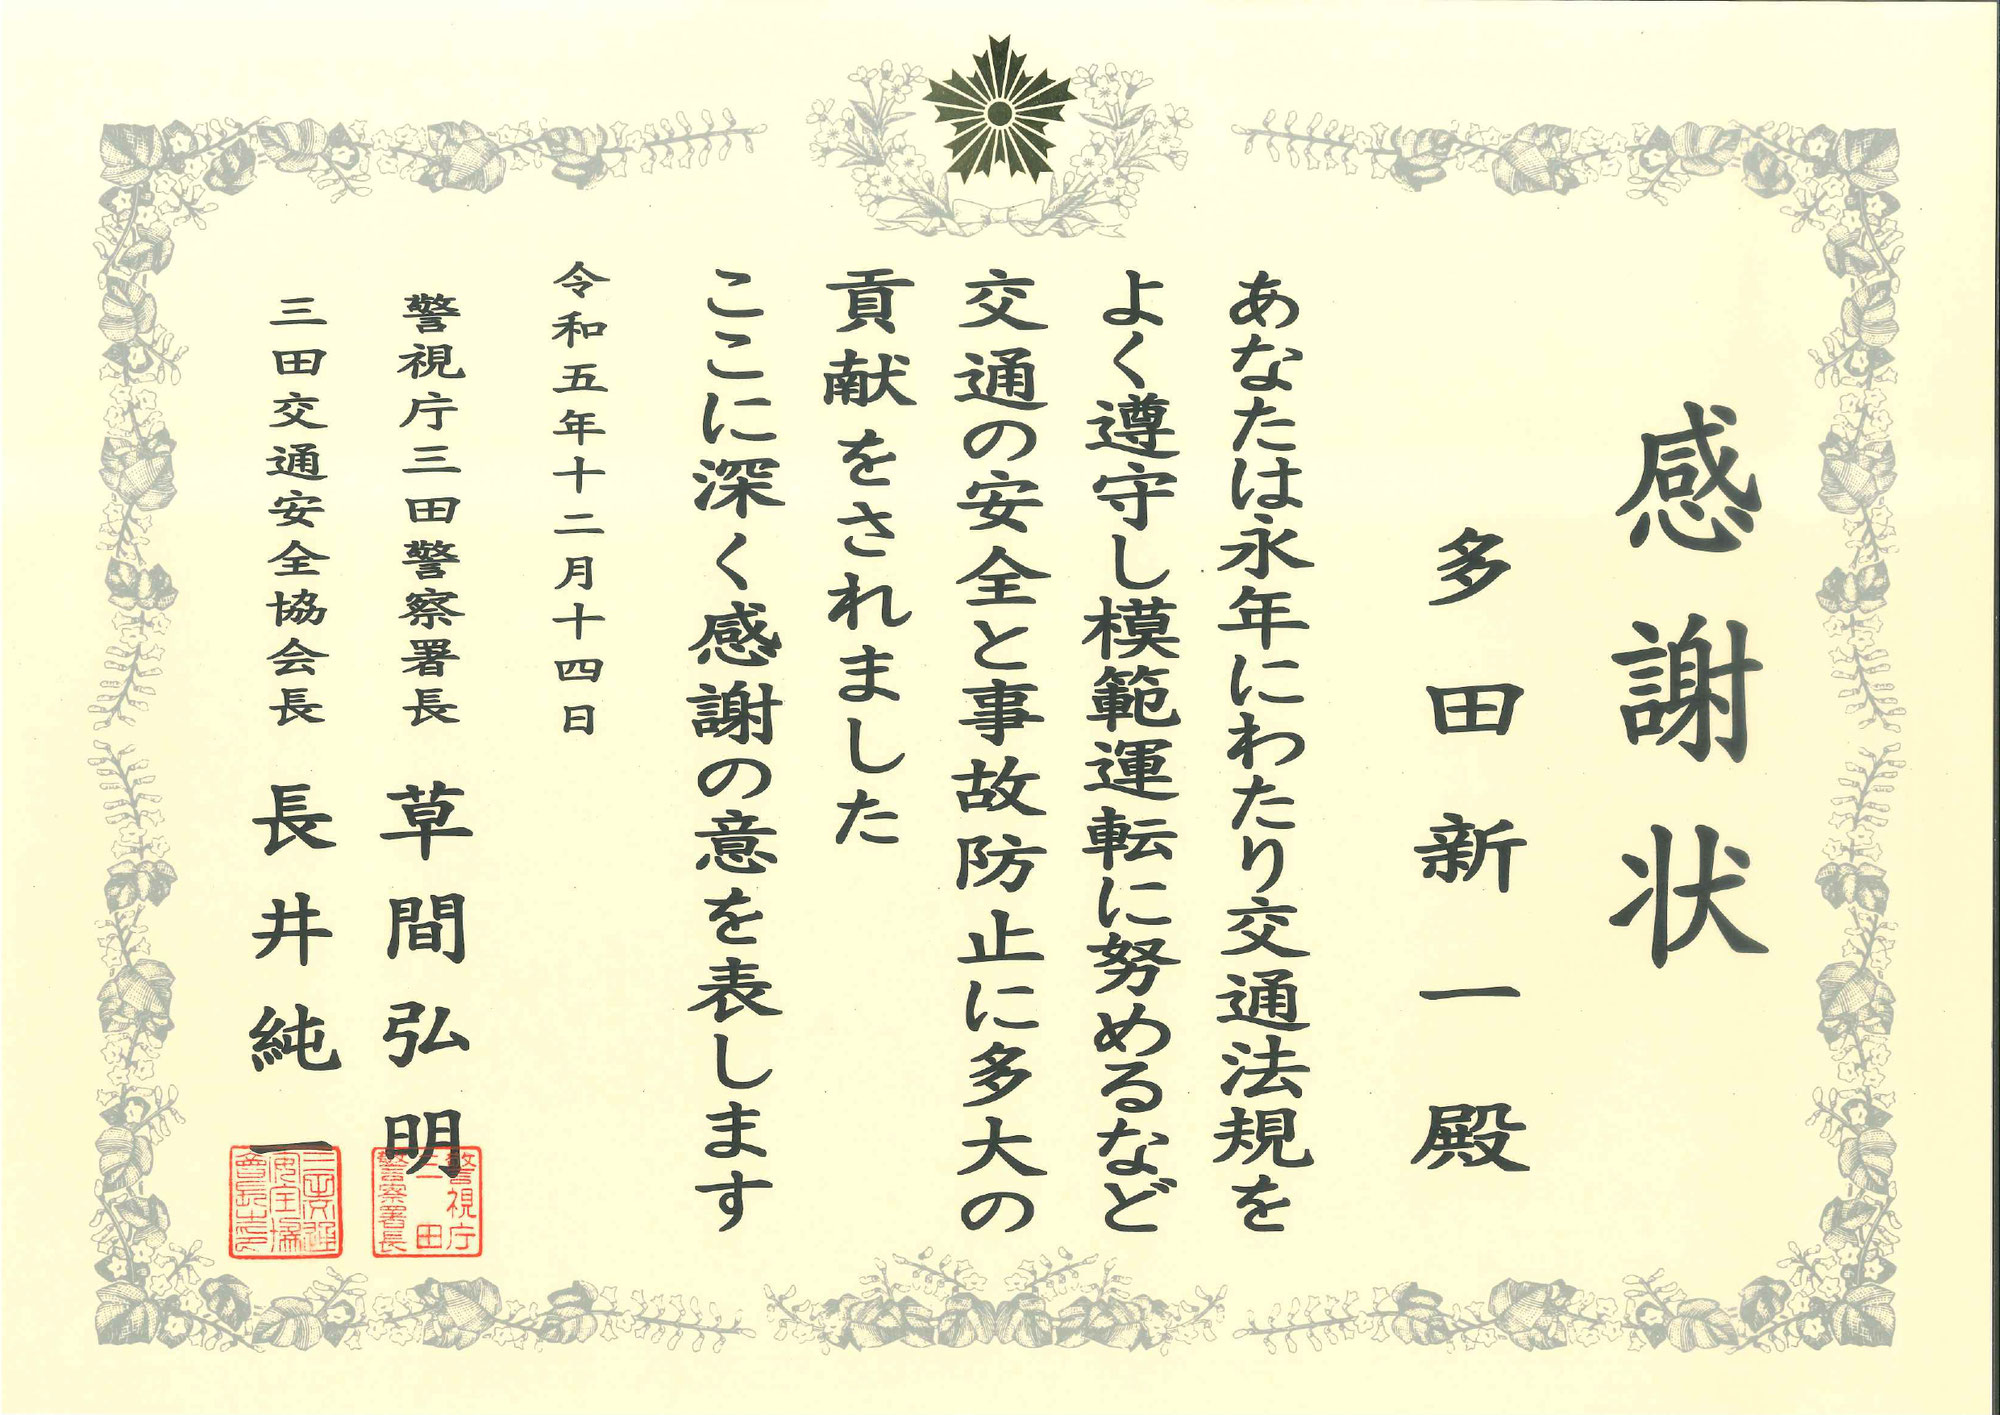 感謝状
多田新一殿
あなたは永年にわたり交通法規を
よく遵守し模範運転に努めるなど
交通の安全と事故防止に多大の
貢献をされました
ここに深く感謝の意を表します
令和五年十二月十四日
警視庁三田警察署長 草間弘明
警視庁
三田
警察署長
三田交通安全協会長 長井純一